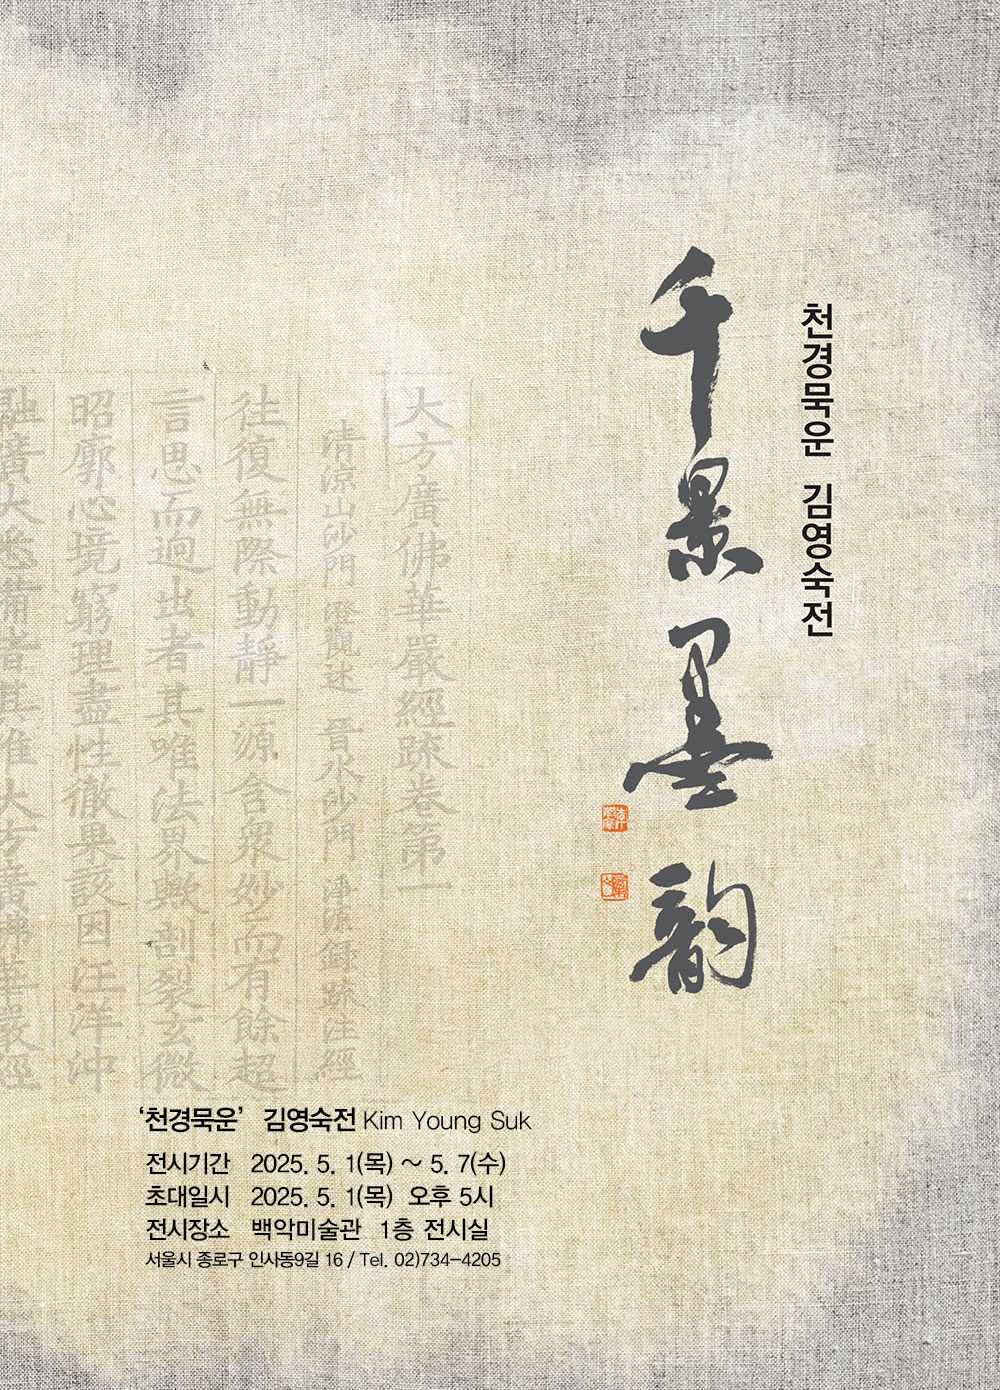 천경묵운 김영숙전
千景墨韵
大方廣佛華嚴經疏卷第一
清涼山沙門 澄觀述 晉水沙門 淨源錄疏注經
往復無際動靜一源含衆妙而有餘超
言思而逈出者其唯法界歟剖裂玄微
昭廓心境窮理盡性徹果該因汪洋沖
融廣大悉備者其唯大方廣佛華嚴經
‘천경묵운’ 김영숙전 Kim Young Suk
전시기간 2025. 5. 1(목) ~ 5. 7(수)
초대일시 2025. 5. 1(목) 오후 5시
전시장소 백악미술관 1층 전시실
서울시 종로구 인사동9길 16 / Tel. 02)734-4205